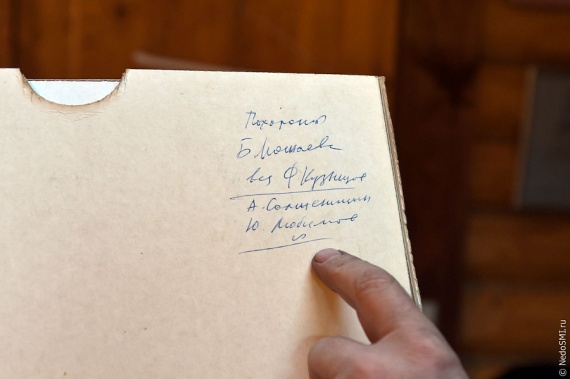 Похороны
Б Можаева
вел Ф Кузнецов
А. Солженицын
Ю. Любимов
© NedoSMI.ru